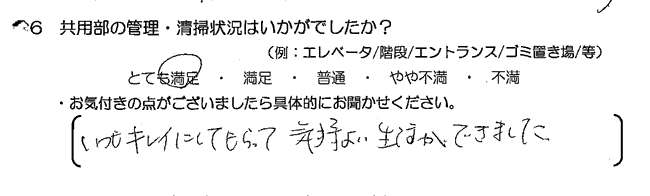 6 共用部の管理・清掃状況はいかがでしたか？
（例：エレベータ/階段/エントランス/ゴミ置き場/等）
とても満足 ・ 満足 ・ 普通 ・ やや不満 ・ 不満
・お気付きの点がございましたら具体的にお聞かせください。
いつもキレイにしてもらって 気持よい生活ができました